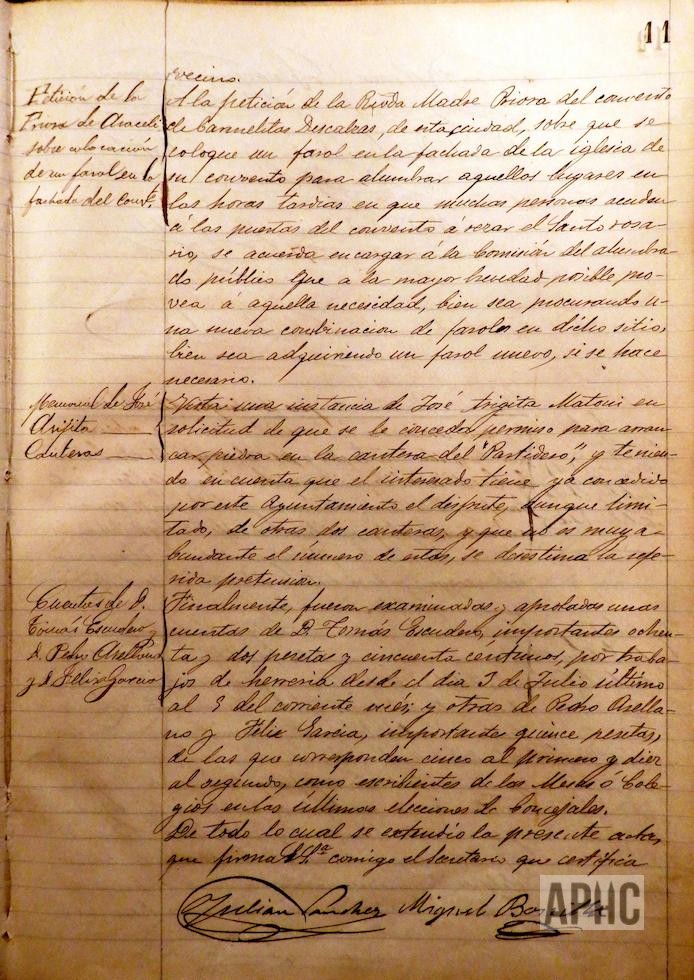 11
vecino.
Petición de la
Priora de Araceli
sobre colocación
de un farol en la
fachada del Convto.
A la petición de la Rvda Madre Priora del convento
de Carmelitas Descalzas, de esta ciudad, sobre que se
coloque un farol en la fachada de la iglesia de
su convento para alumbrar aquellos lugares en
las horas tardias en que muchas personas acuden
á las puertas del convento á rezar el Santo rosa-
rio, se acuerda encargar á la Comisión del alumbra-
do público que a la mayor brevedad posible pro-
vea á aquella necesidad, bien sea procurando u-
na nueva combinacion de faroles en dicho sitio,
bien sea adquiriendo un farol nuevo, si se hace
necesario.
Memorial de José
Arigita
Canteras
Vista una instancia de José Arigita Matoni en
solicitud de que se le conceda permiso para arran-
car piedra en la cantera del "Partidero", y tenien-
do en cuenta que el interesado tiene ya concedido
por este Ayuntamiento el disfrute, aunque limi-
tado, de otras dos canteras, y que no es muy a-
bundante el número de estas, se desestima la refe-
rida pretension.
Cuentas de D.
Tomás Escudero,
D. Pedro Arellano
y D. Félix Garcia
Finalmente, fueron examinadas y aprobadas unas
cuentas de D. Tomás Escudero, importantes ochen-
ta y dos pesetas y cincuenta centimos, por traba-
jos de herreria desde el dia 3 de Julio último
al 5 del corriente mes; y otras de Pedro Arella-
no y Félix Garcia, importantes quince pesetas,
de las que corresponden cinco al primero y diez
al segundo, como escribientes de las Mesas ó Cole-
gios en las últimas elecciones de Concejales.
De todo lo cual se extendió la presente acta,
que firma S.Sª comigo el Secretario que certifica
Julian Sanchez Miguel Bonilla
APHC